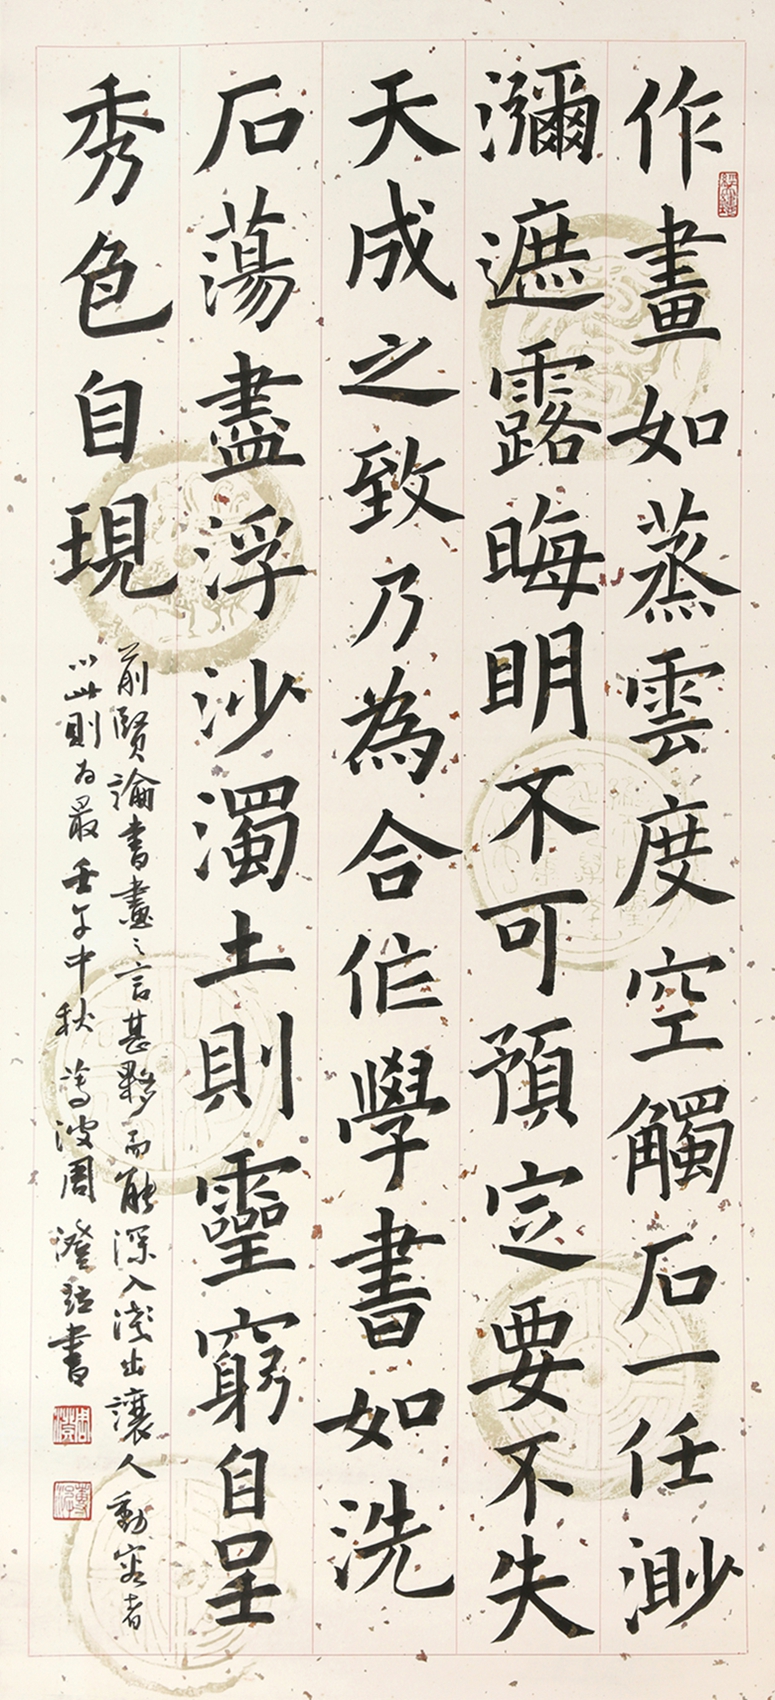 作畫如蒸雲度空觸石一任渺
瀰遮露晦明不可預定要不失
天成之致乃為合作學書如洗
石蕩盡浮沙濁土則靈窮自呈
秀色自現
前賢論書畫之言甚夥而能深入淺出讓人動容者
以此則為最 壬午中秋 蓴波周澄敬書
周澄
蓴波